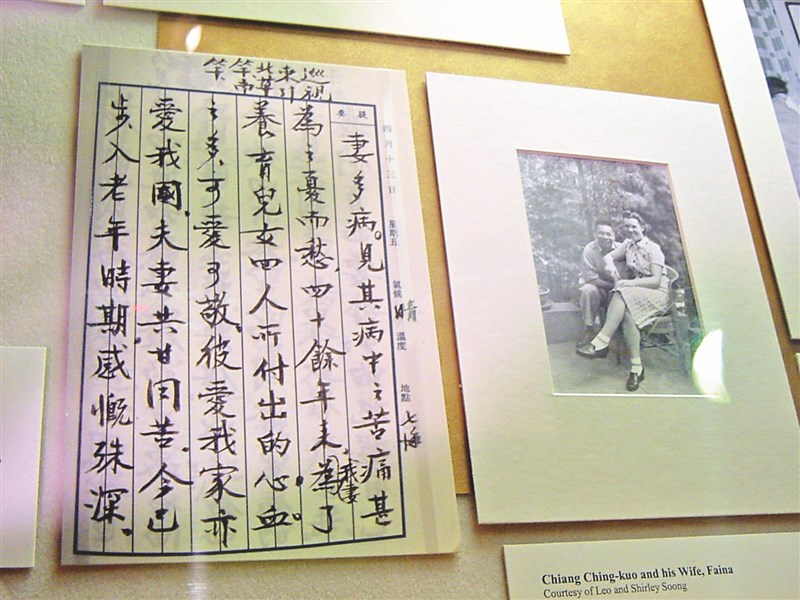 巡視
東引
四月十三日 星期五 氣候 晴 溫度 地點 七海
提要
妻多病。見其病中之苦痛甚
為之憂而愁，四十餘年來。我妻為了
養育兒女四人所付出的心血。
之多可愛可敬，彼愛我家亦
愛我國，夫妻共甘同苦，今已
步入老年時期感慨殊深。
Chiang Ching-kuo and his Wife, Faina
Courtesy of Leo and Shirley Soong